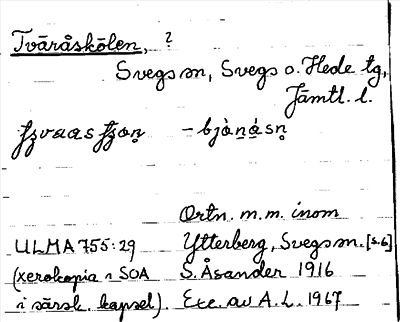 Tvāråskōlen, ?
Svegs sn, Svegs o. Hede tg,
Jämtl. l.
– bjὰn̥ásn̥
Ortn. m.m. inom
ULMA 755:29 Ytterberg, Svegs sn. [s.6]
(xerokopia i SOA S. Åsander 1916
i särsk. kapsel). Exc. av A.L. 1967